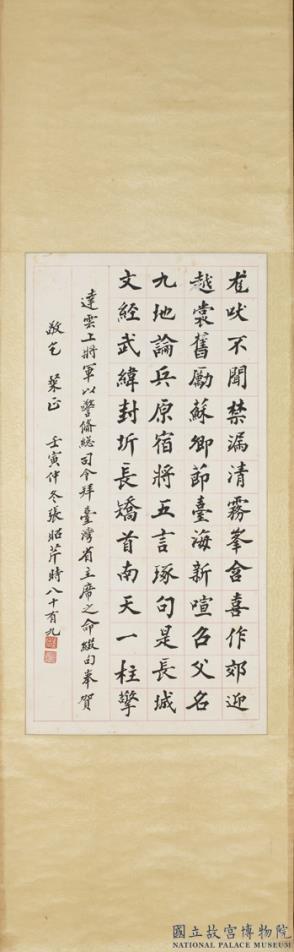 尨吠不聞禁漏清霧峯含喜作郊迎
越裳舊勵蘇卿節臺海新喧召父名
九地論兵原宿將五言琢句是長城
文經武緯封圻長矯首南天一柱擎
達雲上將軍以警備総司令拜臺灣省主席之命綴句奉賀
敬乞 粲正 壬寅仲冬張昭芹時八十有九
國立故宮博物院
NATIONAL PALACE MUSEUM